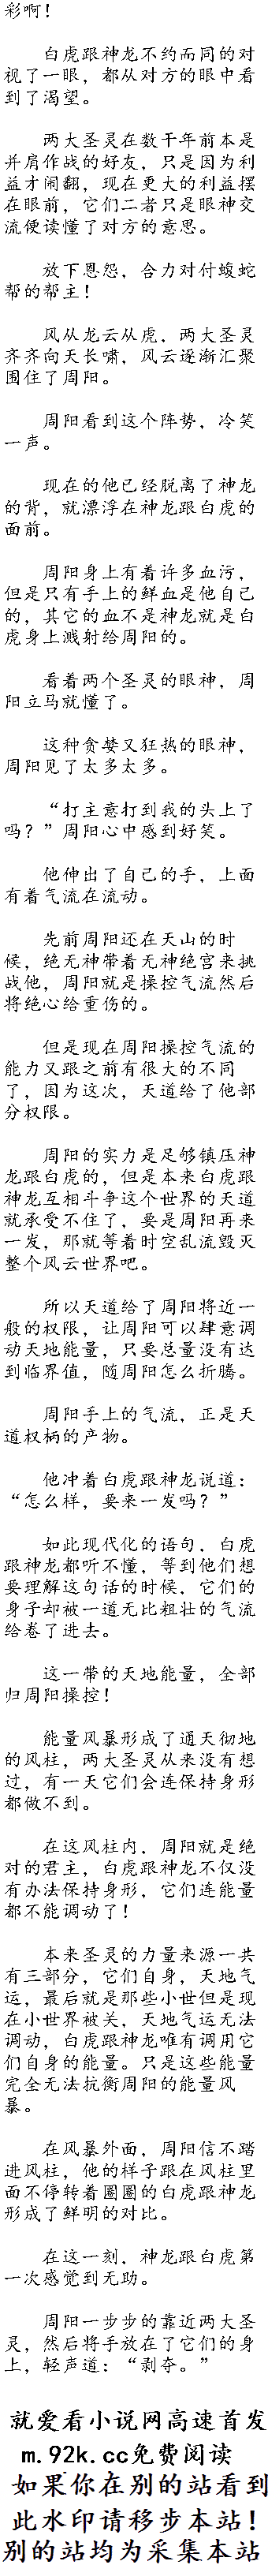 彩啊！
白虎跟神龙不约而同的对
视了一眼，都从对方的眼中看
到了渴望。
两大圣灵在数千年前本是
并肩作战的好友，只是因为利
益才闹翻，现在更大的利益摆
在眼前，它们二者只是眼神交
流便读懂了对方的意思。
放下恩怨，合力对付蝮蛇
帮的帮主！
风从龙云从虎，两大圣灵
齐齐向天长啸，风云逐渐汇聚
围住了周阳。
周阳看到这个阵势，冷笑
一声。
现在的他已经脱离了神龙
的背，就漂浮在神龙跟白虎的
面前。
周阳身上有着许多血污，
但是只有手上的鲜血是他自己
的，其它的血不是神龙就是白
虎身上溅射给周阳的。
看着两个圣灵的眼神，周
阳立马就懂了。
这种贪婪又狂热的眼神，
周阳见了太多太多。
“打主意打到我的头上了
吗？”周阳心中感到好笑。
他伸出了自己的手，上面
有着气流在流动。
先前周阳还在天山的时
候，绝无神带着无神绝宫来挑
战他，周阳就是操控气流然后
将绝心给重伤的。
但是现在周阳操控气流的
能力又跟之前有很大的不同
了，因为这次，天道给了他部
分权限。
周阳的实力是足够镇压神
龙跟白虎的，但是本来白虎跟
神龙互相斗争这个世界的天道
就承受不住了，要是周阳再来
一发，那就等着时空乱流毁灭
整个风云世界吧。
所以天道给了周阳将近一
般的权限，让周阳可以肆意调
动天地能量，只要总量没有达
到临界值，随周阳怎么折腾。
周阳手上的气流，正是天
道权柄的产物。
他冲着白虎跟神龙说道：
“怎么样，要来一发吗？”
如此现代化的语句，白虎
跟神龙都听不懂，等到他们想
要理解这句话的时候，它们的
身子却被一道无比粗壮的气流
给卷了进去。
这一带的天地能量，全部
归周阳操控！
能量风暴形成了通天彻地
的风柱，两大圣灵从来没有想
过，有一天它们会连保持身形
都做不到。
在这风柱内，周阳就是绝
对的君主，白虎跟神龙不仅没
有办法保持身形，它们连能量
都不能调动了！
本来圣灵的力量来源一共
有三部分，它们自身，天地气
运，最后就是那些小世但是现
在小世界被关，天地气运无法
调动，白虎跟神龙唯有调用它
们自身的能量。只是这些能量
完全无法抗衡周阳的能量风
暴。
在风暴外面，周阳信不踏
进风柱，他的样子跟在风柱里
面不停转着圈圈的白虎跟神龙
形成了鲜明的对比。
在这一刻，神龙跟白虎第
一次感觉到无助。
周阳一步步的靠近两大圣
灵，然后将手放在了它们的身
上，轻声道：“剥夺。”
就爱看小说网高速首发
m.92k.cc免费阅读
如果你在别的站看到
此水印请移步本站！
别的站均为采集本站